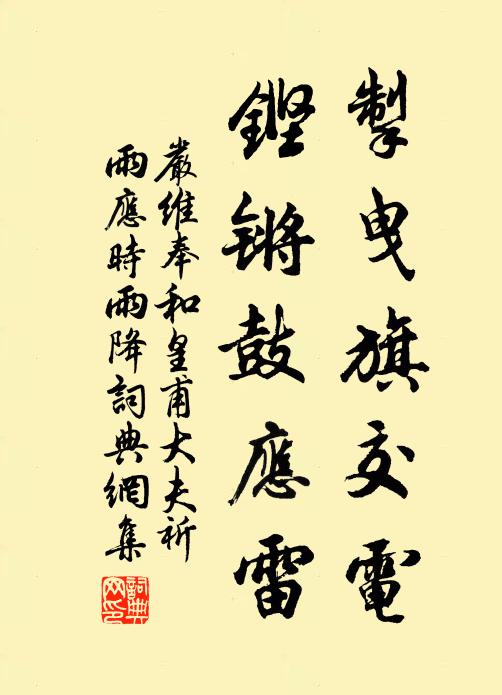 掣曳旗交電
鏗锵鼓應雷
嚴維奉和皇甫大夫祈
雨應時雨降詞典網集
詞典網印